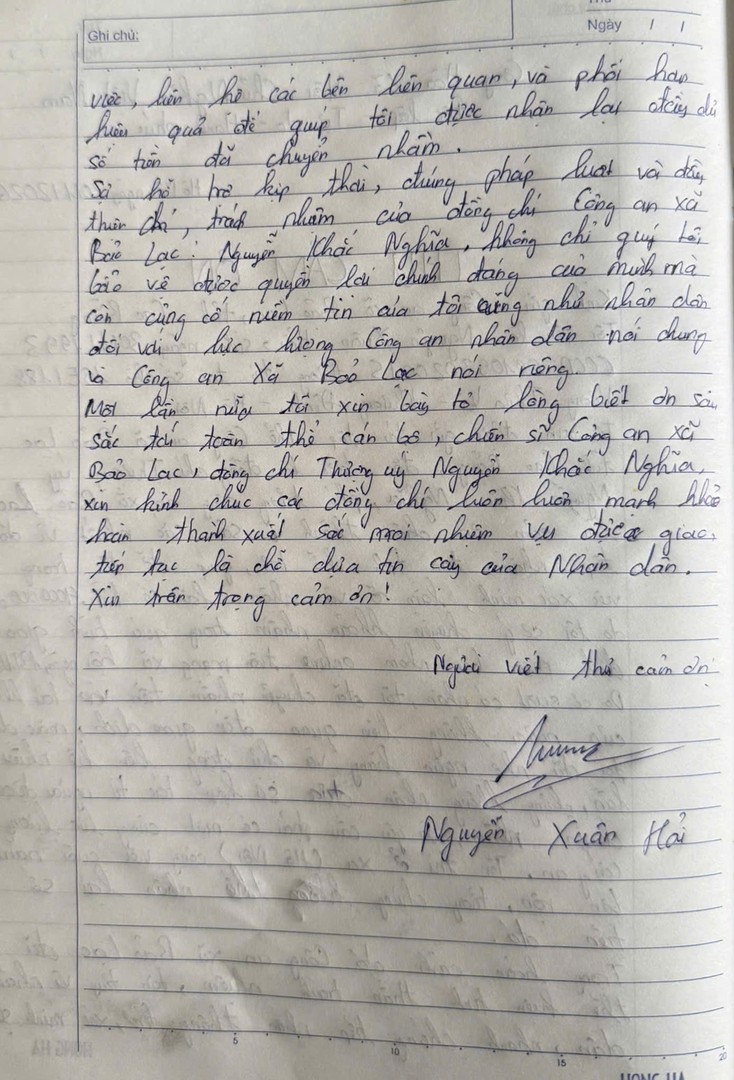 Ghi chú:
Ngày / /
việc, liên hệ các bên liên quan, và phối hợp
hiệu quả để giúp tôi được nhận lại đầy đủ
số tiền đã chuyển nhầm.
Sự hỗ trợ kịp thời, đúng pháp luật và đầy
thiện chí, trách nhiệm của đồng chí Công an xã
Bảo Lạc: Nguyễn Khắc Nghĩa, không chỉ giúp tôi
bảo vệ được quyền lợi chính đáng của mình mà
còn củng cố niềm tin của tôi cũng như nhân dân
đối với lực lượng Công an nhân dân nói chung
và Công an Xã Bảo Lạc nói riêng.
Một lần nữa tôi xin bày tỏ lòng biết ơn sâu
sắc tới toàn thể cán bộ, chiến sĩ Công an xã
Bảo Lạc, đồng chí Thượng uý Nguyễn Khắc Nghĩa,
xin kính chúc các đồng chí luôn luôn mạnh khỏe
hoàn thành xuất sắc mọi nhiệm vụ được giao,
tiếp tục là chỗ dựa tin cậy của Nhân dân.
Xin trân trọng cảm ơn!
Người viết thư cảm ơn
Nguyễn Xuân Hải
5 10 15 20
HONG HA